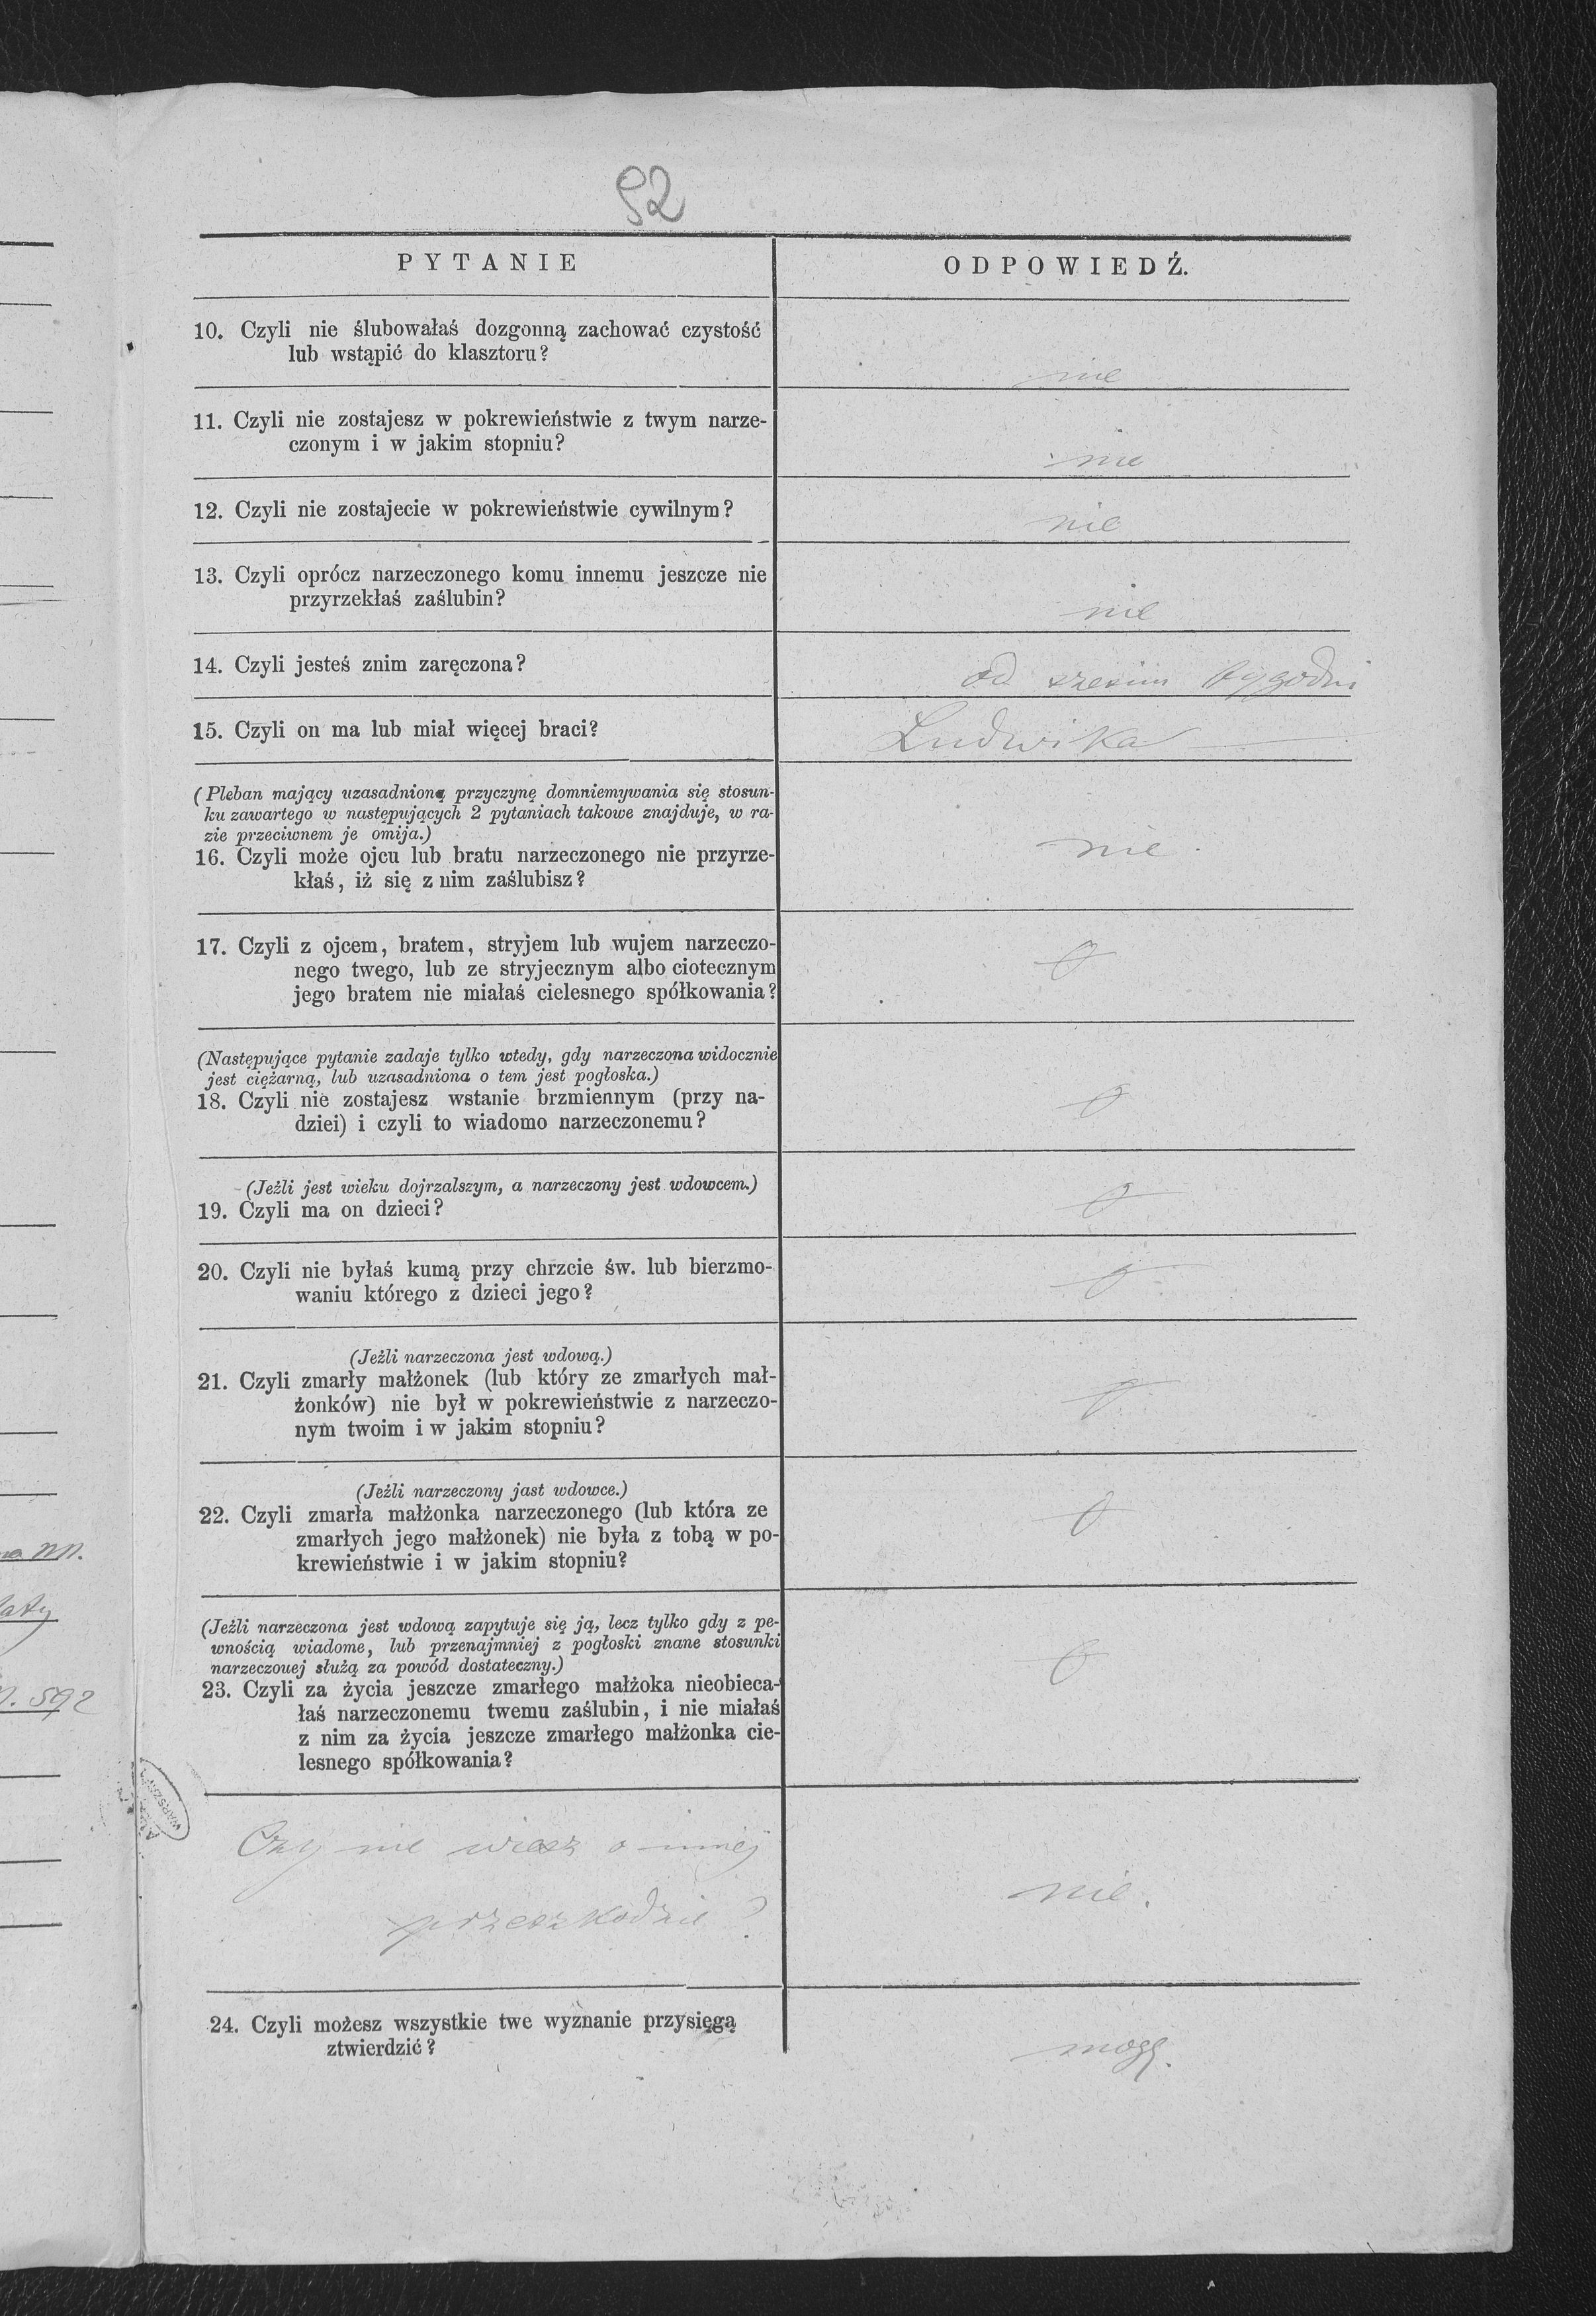 92
PYTANIE
ODPOWIEDŹ.
10. Czyli nie ślubowałaś dozgonną zachować czystość
lub wstąpić do klasztoru?
nie
11. Czyli nie zostajesz w pokrewieństwie z twym narze-
czonym i w jakim stopniu?
nie
12. Czyli nie zostajecie w pokrewieństwie cywilnym?
nie
13. Czyli oprócz narzeczonego komu innemu jeszcze nie
przyrzekłaś zaślubin?
nie
14. Czyli jesteś znim zaręczona?
od tygodni
15. Czyli on ma lub miał więcej braci?
Ludwika
(Pleban mający uzasadnioną przyczynę domniemywania się stosun-
ku zawartego w następujących 2 pytaniach takowe znajduje, w ra-
zie przeciwnem je omija.)
16. Czyli może ojcu lub bratu narzeczonego nie przyrze-
kłaś, iż się z nim zaślubisz?
nie
17. Czyli z ojcem, bratem, stryjem lub wujem narzeczo-
nego twego, lub ze stryjecznym albo ciotecznym
jego bratem nie miałaś cielesnego spółkowania?
(Następujące pytanie zadaje tylko wtedy, gdy narzeczona widocznie
jest ciężarną, lub uzasadniona o tem jest pogłoska.)
18. Czyli nie zostajesz wstanie brzmiennym (przy na-
dziei) i czyli to wiadomo narzeczonemu?
(Jeźli jest wieku dojrzalszym, a narzeczony jest wdowcem.)
19. Czyli ma on dzieci?
20. Czyli nie byłaś kumą przy chrzcie św. lub bierzmo-
waniu którego z dzieci jego?
(Jeźli narzeczona jest wdową.)
21. Czyli zmarły małżonek (lub który ze zmarłych mał-
żonków) nie był w pokrewieństwie z narzeczo-
nym twoim i w jakim stopniu?
(Jeźli narzeczony jast wdowce.)
22. Czyli zmarła małżonka narzeczonego (lub która ze
zmarłych jego małżonek) nie była z tobą w po-
krewieństwie i w jakim stopniu?
(Jeźli narzeczona jest wdową zapytuje się ją, lecz tylko gdy z pe-
wnością wiadome, lub przenajmniej z pogłoski znane stosunki
narzeczouej służą za powód dostateczny.)
23. Czyli za życia jeszcze zmarłego małżoka nieobieca-
łaś narzeczonemu twemu zaślubin, i nie miałaś
z nim za życia jeszcze zmarłego małżonka cie-
lesnego spółkowania?
Czy nie wiesz o innej
przeszkodzie?
nie.
24. Czyli możesz wszystkie twe wyznanie przysięgą
ztwierdzić?
mogę.
592